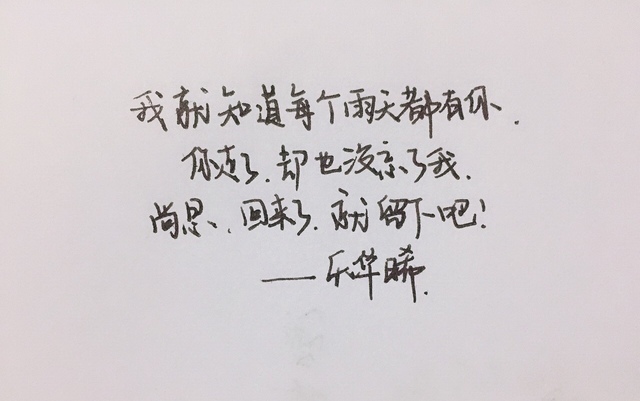 我就知道每个雨天都有你.
你走了.却也没忘了我.
尚思、回来了.就留下吧!
——乐华晞.